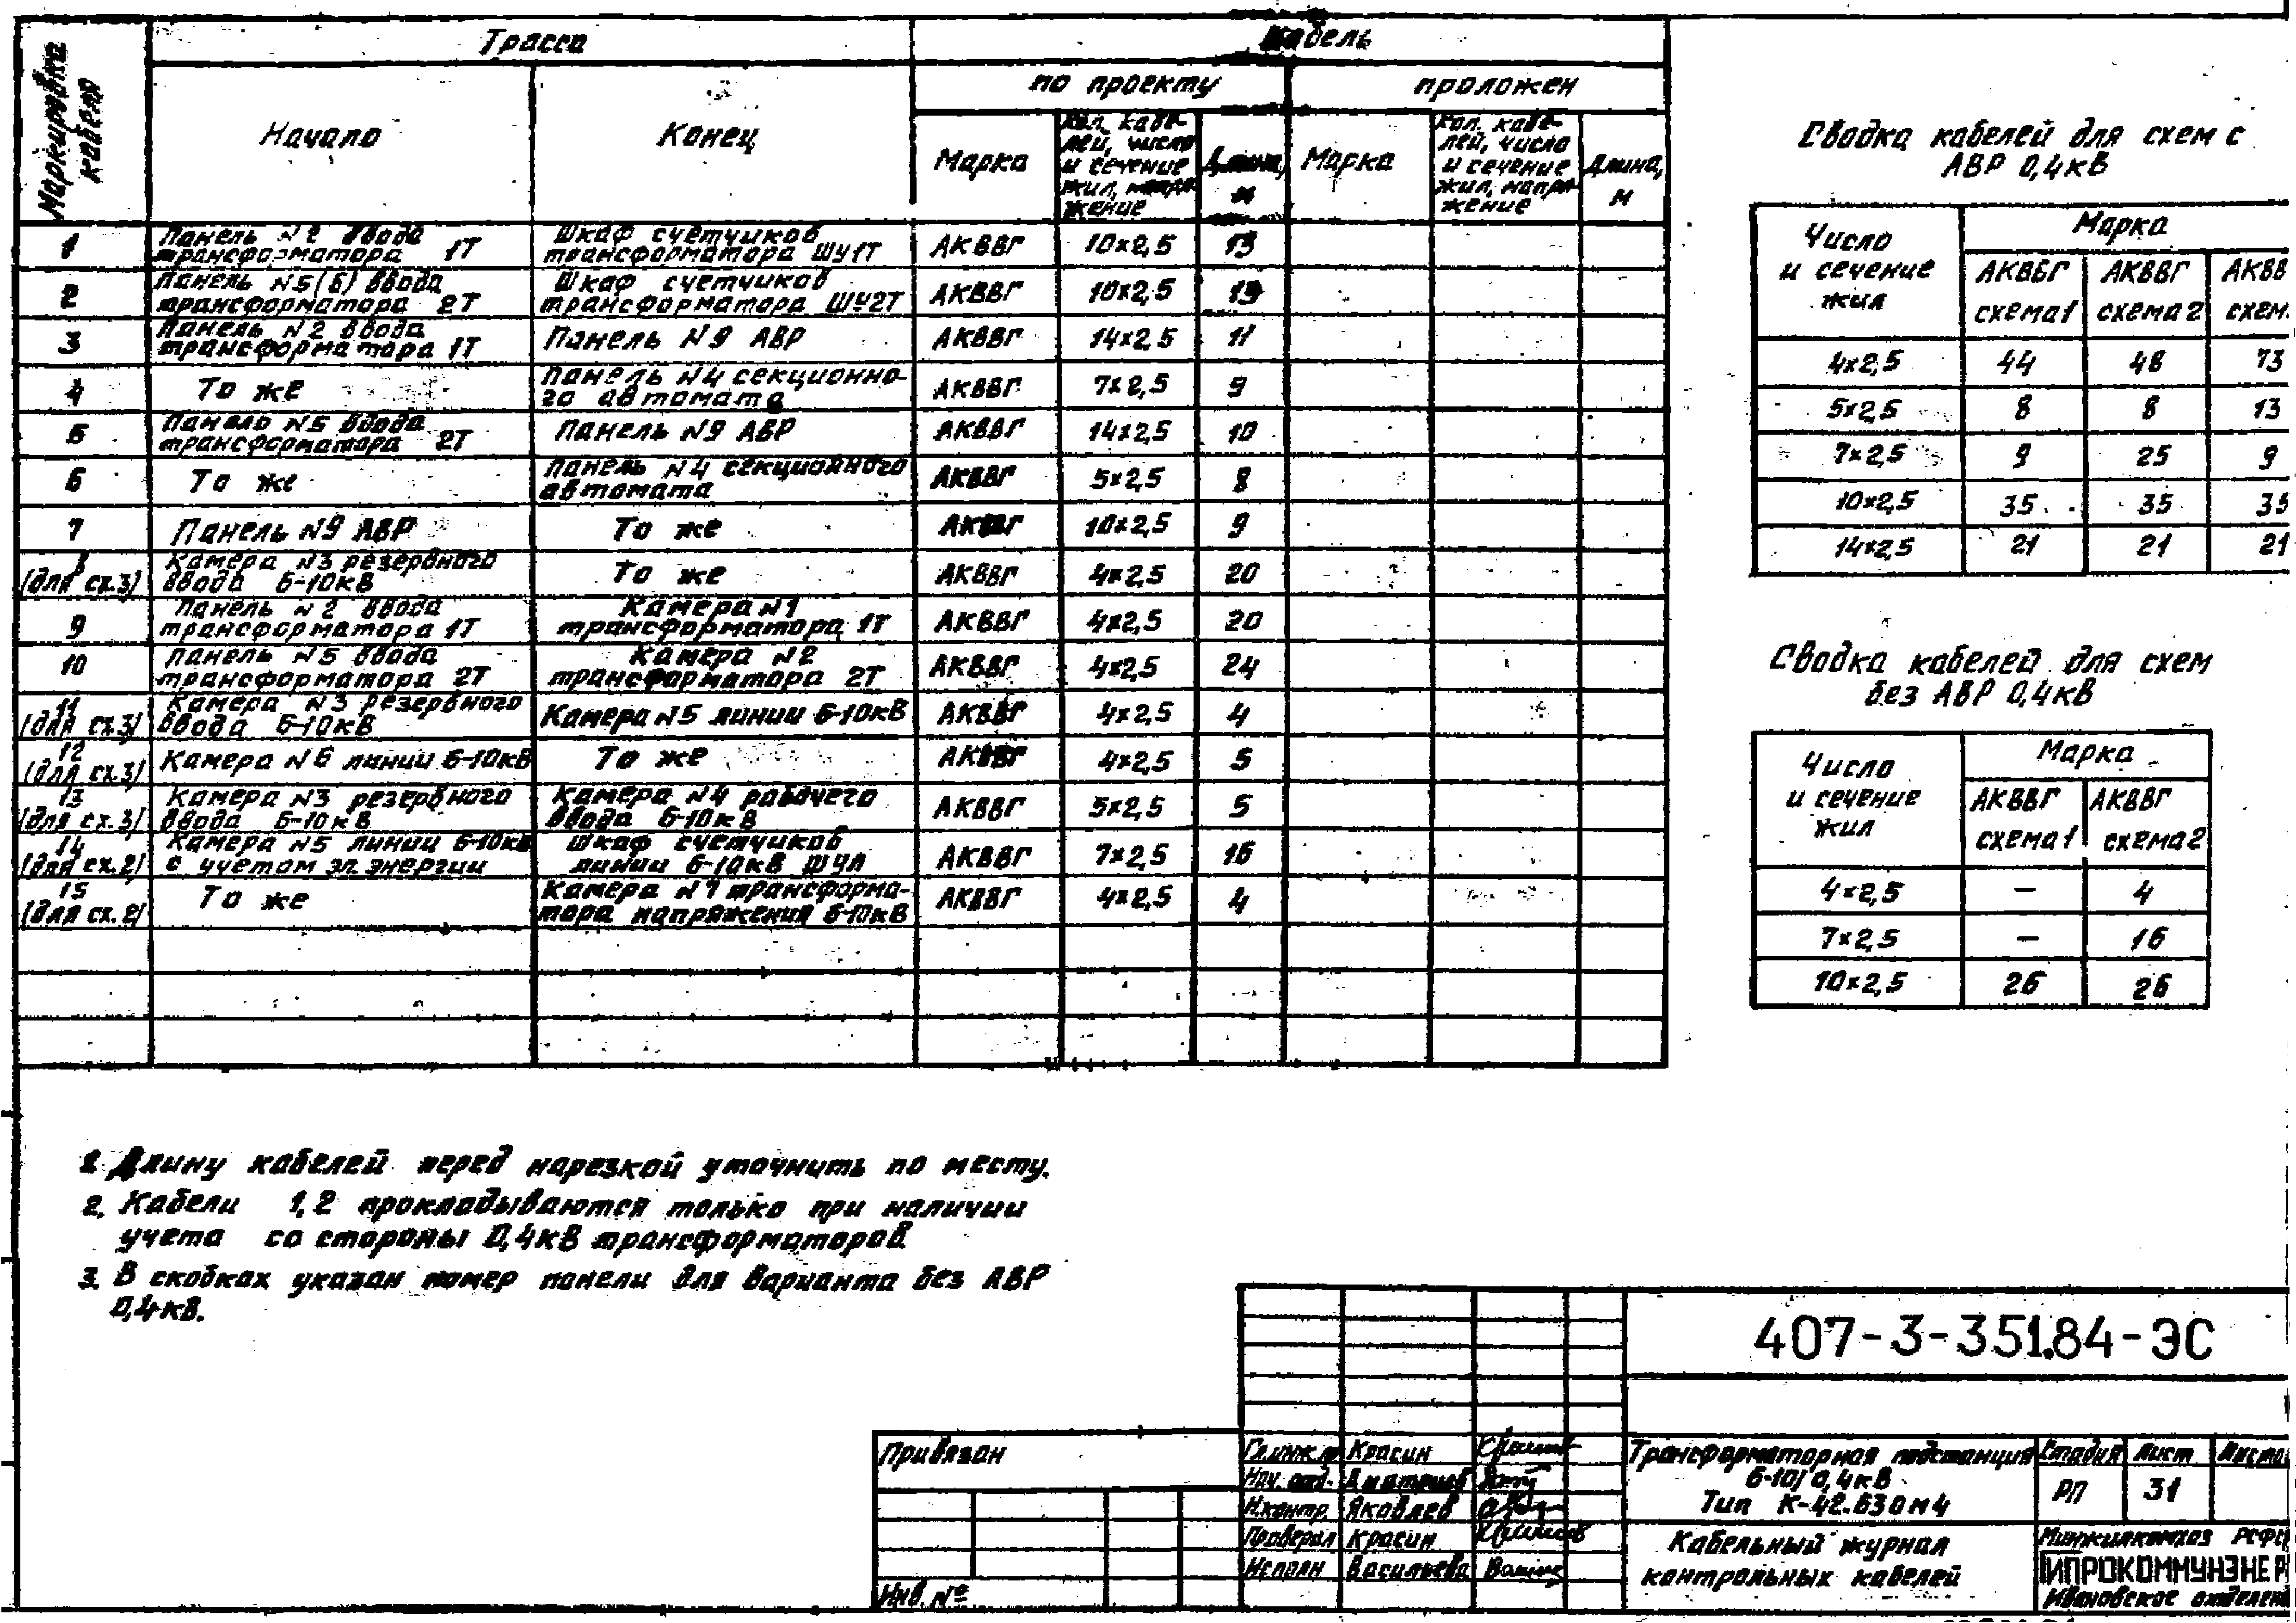 Маркировка кабеля
Трасса
Кабель
Начало
Конец
по проекту
проложен
Марка
Кол. кабе-
лей, число
и сечение
жил, напря-
жение
Длина,
м
Марка
Кол. кабе-
лей, число
и сечение
жил, напря-
жение
Длина,
м
1 Панель №2 ввода трансформатора 1Т Шкаф счетчиков трансформатора ШУ1Т АКВВГ 10х2,5 13
2 Панель №5(6) ввода трансформатора 2Т Шкаф счетчиков трансформатора ШУ2Т АКВВГ 10х2,5 13
3 Панель №2 ввода трансформатора 1Т Панель №9 АВР АКВВГ 14х2,5 11
4 То же Панель №4 секционно-го автомата АКВВГ 7х2,5 9
5 Панель №5 ввода трансформатора 2Т Панель №9 АВР АКВВГ 14х2,5 10
6 То же Панель №4 секционного автомата АКВВГ 5х2,5 8
7 Панель №9 АВР То же АКВВГ 10х2,5 9
8 (для сх.3) Камера №3 резервного ввода 6-10кВ То же АКВВГ 4х2,5 20
9 Панель №2 ввода трансформатора 1Т Камера №1 трансформатора 1Т АКВВГ 4х2,5 20
10 Панель №5 ввода трансформатора 2Т Камера №2 трансформатора 2Т АКВВГ 4х2,5 24
11 (для сх.3) Камера №3 резервного ввода 6-10кВ Камера №5 линии 6-10кВ АКВВГ 4х2,5 4
12 (для сх.3) Камера №6 линии 6-10кВ То же АКВВГ 4х2,5 5
13 (для сх.3) Камера №3 резервного ввода 6-10кВ Камера №4 рабочего ввода 6-10кВ АКВВГ 5х2,5 5
14 (для сх.2) Камера №5 линии 6-10кВ с учетом эл. энергии Шкаф счетчиков линии 6-10кВ ШУЛ АКВВГ 7х2,5 16
15 (для сх.2) То же Камера №7 трансформа-тора напряжения 6-10кВ АКВВГ 4х2,5 4
Сводка кабелей для схем с
АВР 0,4кВ
Число
и сечение
жил
Марка
АКВВГ АКВВГ АКВВ
схема1 схема2 схем.
4х2,5 44 48 73
5х2,5 8 8 13
7х2,5 9 25 9
10х2,5 35 35 35
14х2,5 21 21 21
Сводка кабелей для схем
без АВР 0,4кВ
Число
и сечение
жил
Марка
АКВВГ АКВВГ
схема1 схема2
4х2,5 — 4
7х2,5 — 16
10х2,5 26 26
1. Длину кабелей перед нарезкой уточнить по месту.
2. Кабели 1,2 прокладываются только при наличии
учета со стороны 0,4кВ трансформаторов
3. В скобках указан номер панели для варианта без АВР
0,4кВ.
407-3-351.84-ЭС
Привязан
Инв. №
Гл.инж.пр Красин
Нач. отд. Дмитриев
Н.контр. Яковлев
Проверил Красин
Исполн Васильева
Трансформаторная подстанция
6-10/0,4кВ
Тип К-42.630м4
Стадия Лист Листо
РП 31
Кабельный журнал
контрольных кабелей
Минжилкомхоз РСФС
ГИПРОКОММУНЭНЕР
Ивановское отделен